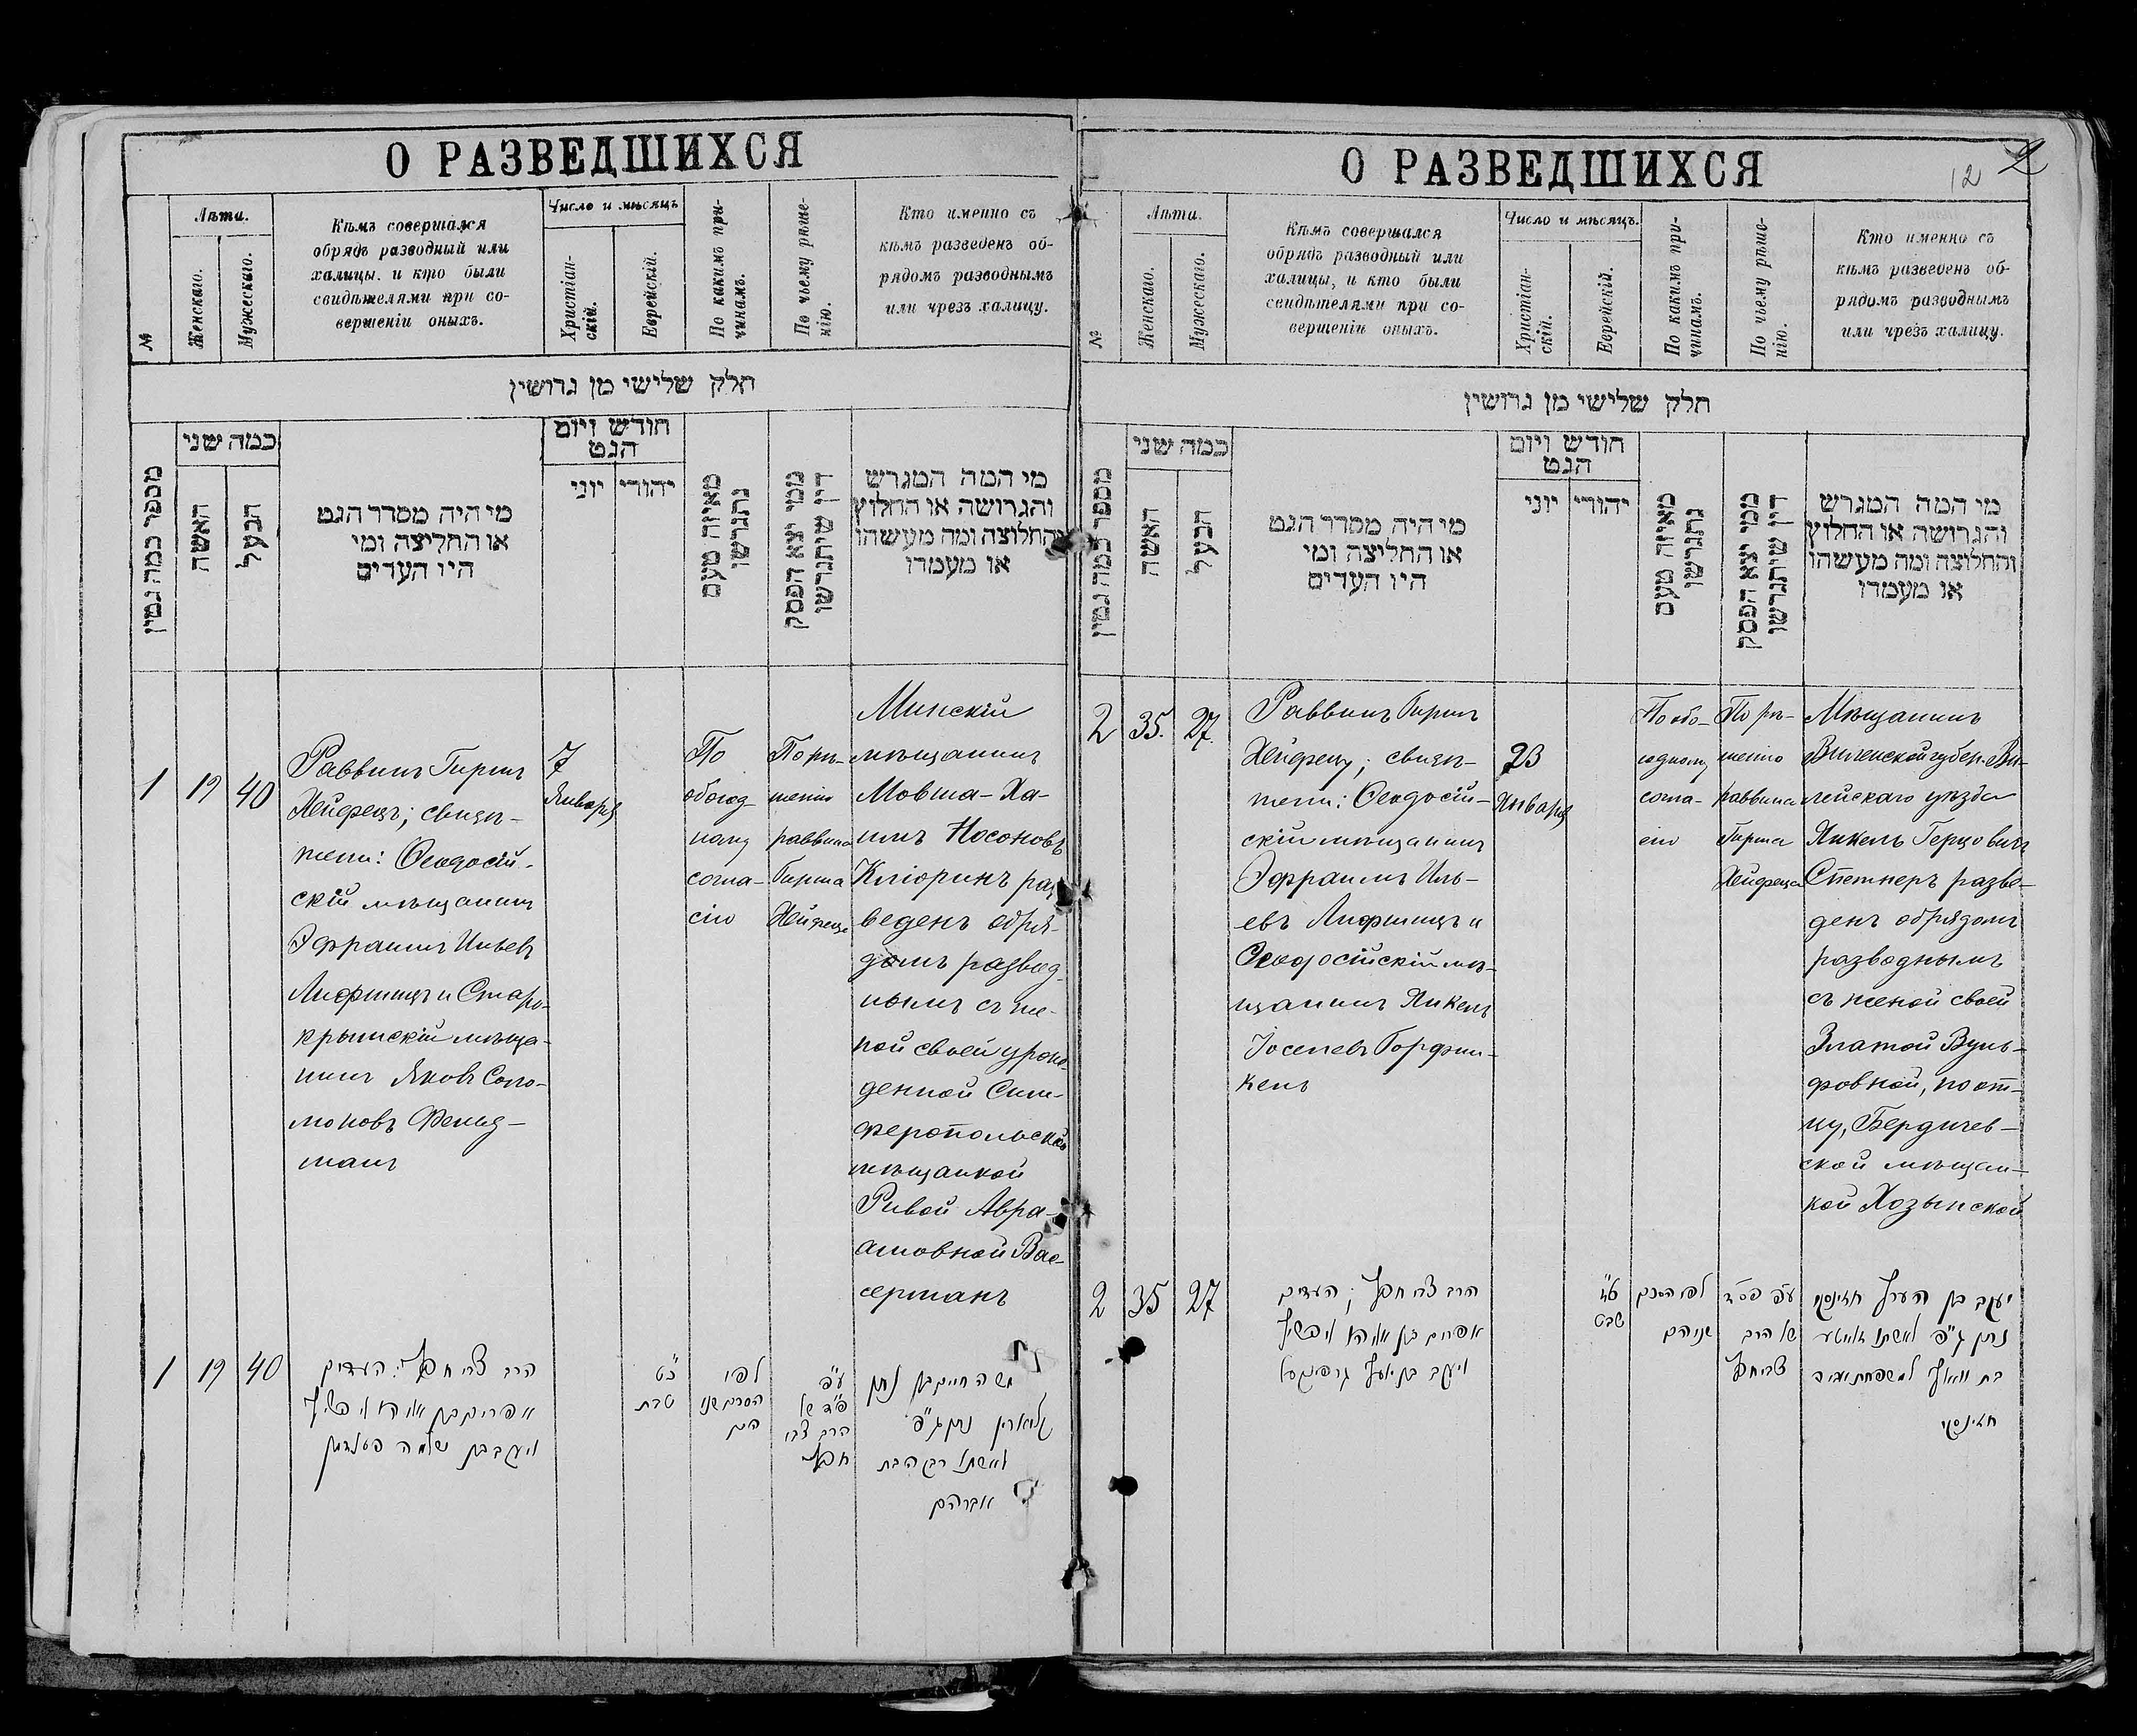 О РАЗВЕДШИХСЯ
№
Лѣта.
Женскаго.
Мужескаго.
Кѣмъ совершался
обрядъ разводный или
халицы. и кто были
свидѣтелями при со-
вершеніи оныхъ.
Число и мѣсяцъ
Христіан-
скій.
Еврейскій.
По какимъ при-
чинамъ.
По чьему рѣше-
нію.
Кто именно съ
кѣмъ разведенъ об-
рядомъ разводнымъ
или чрезъ халицу.
חלק שלישי מן גרושין
מספר כמה גטין
כמה שני
האשה
הבעל
מי היה מסדר הגט
או החליצה ומי
היו העדים
חודש ויום
הגט
יוני
יהודי
מאיזה טעם
נתגרשו
ממי יצא הפסק
דין שיתגרשו
מי המה המגרש
והגרושה או החלוץ
והחלוצה ומה מעשהו
או מעמדו
1
19
40
Раввинъ Гиршъ
Хейфецъ; свидѣ-
тели: Ѳеодосій-
скій мѣщанинъ
Эфраимъ Ильевъ
Лифшицъ и Старо-
крымскій мѣща-
нинъ Яковъ Соло-
моновъ Фельд-
манъ
7
Января
По
обоюд-
ному
согла-
сію
По рѣ-
шенію
раввина
Гирша
Хейфеца
Минскій
мѣщанинъ
Мовша-Ха-
имъ Носоновъ
Кліоринъ раз
веденъ обря-
домъ развод-
нымъ съ же-
ной своей урож-
денной Сим-
феропольской
мѣщанкой
Ривой Авра-
амовной Вас-
серманъ
1
19
40
הרב צבי חפץ; העדים
אפרים בן אליהו ליפשיץ
ויעקב בן שלמה פעלדמן
כ״ט
טבת
לפי
הסכם שני
הם
ע״פ
פ״ד של
הרב צבי
חפץ
משה חיים בן נתן
קליארין נתן ג״פ
לאשתו רבקה בת
אברהם
О РАЗВЕДШИХСЯ
12
2
№
Лѣта.
Женскаго.
Мужескаго.
Кѣмъ совершался
обрядъ разводный или
халицы, и кто были
свидѣтелями при со-
вершеніи оныхъ.
Число и мѣсяцъ.
Христіан-
скій.
Еврейскій.
По какимъ при-
чинамъ.
По чьему рѣше-
нію.
Кто именно съ
кѣмъ разведенъ об-
рядомъ разводнымъ
или чрезъ халицу.
חלק שלישי מן גרושין
מספר כמה גטין
כמה שני
האשה
הבעל
מי היה מסדר הגט
או החליצה ומי
היו העדים
חודש ויום
הגט
יוני
יהודי
מאיזה טעם
נתגרשו
ממי יצא הפסק
דין שיתגרשו
מי המה המגרש
והגרושה או החלוץ
והחלוצה ומה מעשהו
או מעמדו
2
35.
27.
Раввинъ Гиршъ
Хейфецъ; свидѣ-
тели: Ѳеодосій-
скій мѣщанинъ
Эфраимъ Иль-
евъ Лифшицъ и
Ѳеодосійскій мѣ-
щанинъ Янкель
Іоселевъ Горфин-
кель
23
Января
По обо-
юдному
согла-
сію
По рѣ-
шенію
раввина
Гирша
Хейфеца
Мѣщанинъ
Виленской губер. Ви-
лейскаго уѣзда
Янкель Герцовичъ
Спетнеръ разве-
денъ обрядомъ
разводнымъ
съ женой своей
Златой Вуль-
фовной, по от-
цу, Бердичев-
ской мѣщан-
кой Хозынской
2
35
27
הרב צבי חפץ; העדים
אפרים בן אליהו ליפשיץ
ויעקב בן יוסף גרפינקל
ט״ו
שבט
לפי הסכם
שניהם
ע״פ פס״ד
של הרב
צבי חפץ
יעקב בן הערץ
נתן ג״פ לאשתו זלאטע
בת וואלף למשפחת אביה